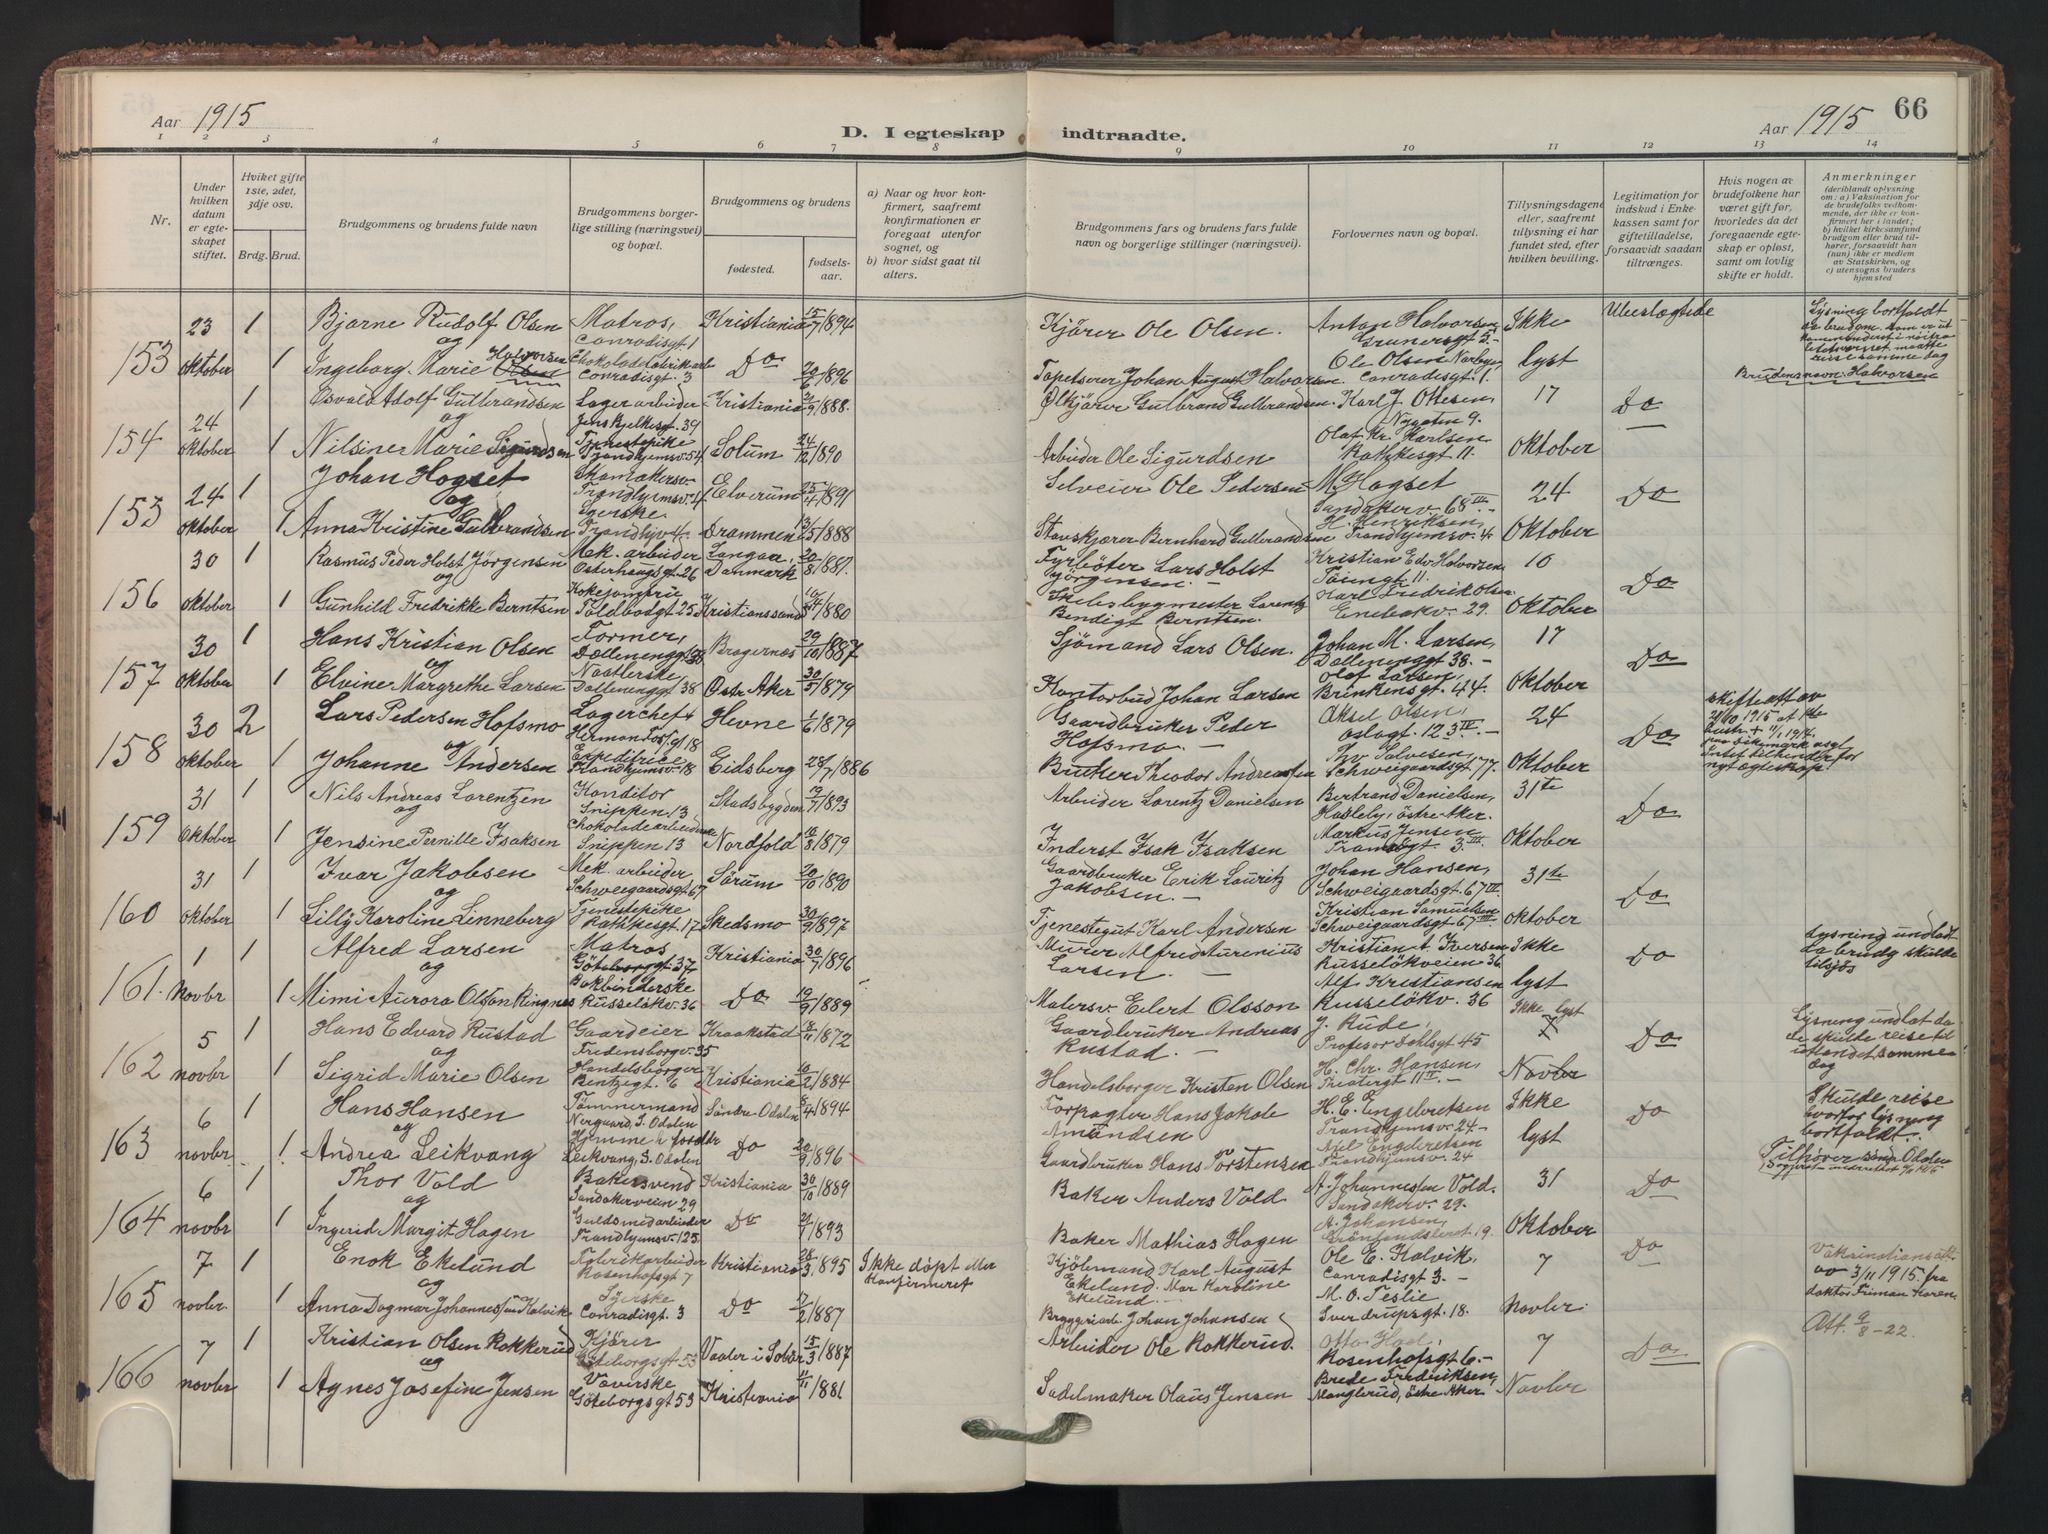 Aar 1915
D. I egteskap indtraadte.
Aar 1915
66
1 2 3 4 5 6 7 8 9 10 11 12 13 14
Nr.
Under hvilken datum er egteskapet stiftet.
Hvilket gifte 1ste, 2det, 3dje osv.
Brdg. Brud.
Brudgommens og brudens fulde navn
Brudgommens borgerlige stilling (næringsvei) og bopæl.
Brudgommens og brudens
fødested.
fødselsaar.
a) Naar og hvor konfirmert, saafremt konfirmationen er foregaat utenfor sognet, og
b) hvor sidst gaat til alters.
Brudgommens fars og brudens fars fulde navn og borgerlige stillinger (næringsvei).
Forlovernes navn og bopæl.
Tillysningsdagene eller, saafremt tillysning ei har fundet sted, efter hvilken bevilling.
Legitimation for indskud i Enkekassen samt for giftetilladelse, forsaavidt saadan tiltrænges.
Hvis nogen av brudefolkene har været gift før, hvorledes da det foregaaende egteskap er opløst, samt om lovlig skifte er holdt.
Anmerkninger
(deriblandt oplysning om: a) Vaksination for de brudefolks vedkommende, der ikke er konfirmert her i landet;
b) hvilket kirkesamfund brudgom eller brud tilhører, forsaavidt han (hun) ikke er medlem av Statskirken, og
c) utensogns bruders hjemsted
153 23 oktober 1 Bjarne Rudolf Olsen Matros, Conradisgt 1 Kristiania 15/7 1894 Kjörer Ole Olsen. Anton Halvorsen Grunersgt 3.- Ikke Ubeslægtede
og
1 Ingeborg Marie Halvorsen Conradisgt. 3 Do 20/6 1896 Tapetserer Johan August Halvorsen. Ole Olsen Conradisgt. 1. lyst
Brudens navn Halvorsen
154 24 oktober 1 Osvald Adolf Gulbrandsen Lagerarbeider Jens Bjelkesgt. 39 Kristiania 21/9 1888. Ölkjörer Gulbrand Gulbrandsen. Karl J. Ottesen, Nygaten 9. 17 Do
og
1 Nilsine Marie Sigurdsen Tjenestepike Trondhjemsv. 54 Solum 24/12 1890 Arbeider Ole Sigurdsen Olaf Kr. Karlsen Rathkesgt 11. Oktober
153 24 oktober 1 Johan Hogset Skomakersv. Trondhjemsv. 4 Elverum 25/4 1891 Selveier Ole Pedersen M. Hogset Sandakerv. 68 III.- 24 Do
og
1 Anna Kristine Gulbrandsen Syerske Trondhjv 4. Drammen 13/5 1888 Stavskjærer Bernhard Gulbrandsen H. Henriksen, Trondhjemsv. 4. Oktober
156 30 oktober 1 Rasmus Peder Holst Jörgensen Mek. arbeider Osterhausgt. 26 Langaa, Danmark 20/8 1881. Fyrböter Lars Holst Jörgensen. Kristian Edv Halvorsen Töiengt. 11. 10 Do
og
1 Gunhild Fredrikke Berntsen Kokejomfru Toldbodgt 25 Kristianssand 1880 Skibsbygmester Lorentz Bendigt Berntsen. Karl Fredrik Olsen Enebakv. 29. Oktober
157 30 oktober 1 Hans Kristian Olsen Former, Dælenenggt 38 Bragernæs 29/10 1887 Sjömand Lars Olsen. Johan M. Larsen Dællenenggt 38.- 17 Do
og
1 Elvine Margrethe Larsen Naatlerske Dællenenggt 38 Östr Aker 30/5 1879 Kontorbud Johan Larsen Olof Larsen, Brinkensgt. 44. Oktober
158 30 oktober 2 Lars Pedersen Hofsmo Lagerchef Herman Fossgt 18 Hevne 1/6 1879 Gaardbruker Peder Hofsmo.- Aksel Olsen, Oslogt. 12 3 IV.- 24 Do
og
1 Johanne Andersen Expeditrice Trondhjemsv. 18 Eidsberg 28/7 1886 Theodor Andreassen Schweigaardsgt 77. Oktober
159 31 oktober 1 Nils Andreas Lorentzen Konditor Snippen 13 Stadsbygden 19/7 1893 Arbeider Lorentz Danielsen Bertrand Danielsen, Hasleby, östre Aker. 31te Do
og
1 Jensine Pernille Isaksen Chokoladearbeiderske Snippen 13 Nordfold 16/8 1879 Inderst Isak Isaksen Markus Jensen 3 III. Oktober
160 31 oktober 1 Ivar Jakobsen Mek. arbeider Schweigaardsgt 67 Sörum 20/10 1890 Gaardbruker Erik Lauritz Jakobsen.- Johan Hansen, Schweigaardsgt. 67 III 31te Do
og
1 Lilly Karoline Linneberg Tjenestepike Rathkesgt 17 Skedsmo 30/9 1897 Tjenestegut Karl Andersen Kristian Samuelsen Schweigaardsgt. 67 III oktober
161. 1 Novbr 1 Alfred Larsen Matros Göteborggt 37 Kristiania 30/7 1896 Murer Alfred Aurenius Larsen.- Kristian A Iversen Russelökveien 36 Ikke Do Lysning undlodt da brudg skulde tilsjös
og
1 Mimi Aurora Olson Ringnes Bokbinderske Russelökv. 36 Do 19/9 1889 Malersv. Eilert Olsson Alf Kristiansen Russelökv. 36 lyst
162 5 novbr 1 Hans Edvard Rustad Gaardeier Fredensborgv. 35 Kraakstad 18/11 1872 Gaardbruker Andreas Rustad.- J. Rude, Profesor Dahlsgt 45 Ikke lyst Do Lysning undlat da de skulde reise til utlandet samme dag
og
1 Sigrid Marie Olsen Handelsborger Bentzegt. 6 Kristiania 10/2 1884 Handelsborger Kristen Olsen H. Chr. Hansen, Theatergt 11 IV.- Novber
163 6 novber 1 Hans Hansen Tömmermand Nergaard, S. Odalen Söndre Odalen 8/4 1894 Forpagter Hans Jakob Amundsen H. E. Engebretsen Trondhjemsv. 24.- Ikke Do Skulde reise hvorfor lysning bortfaldt.
og
1 Andrea Leikvang Hjemme h. foreldre Leikvang, S. Odalen Do 20/9 1896 Gaardbruker Hans Torstensen Axel Engebretsen Trondhjemsv. 24 lyst Tilhører söndr Odalen
164 6 novbr 1 Thor Vold Bakersvend Sandakerveien 29 Kristiania 30/10 1889 Baker Anders Vold A Johannessen Vold. Sandakerv. 29. 31 Do
og
1 Ingerid Margit Hagen Guldsmedarbeider Trondhjemsv. 125 Do 1893 Baker Mathias Hagen A. Johansen, Grönlandsleret 19. Oktober
165 7 novber. 1 Enok Ekelund Fabrikarbeider Rosenhofsgt 7 Kristiania 28/3 1895 Ikke döpt eller Konfirmeret Kjölemand Karl August Ekelund. Mor Karoline Ekelund.- Ole E. Kalvik, Conradisgt 3.- 7 Do Vaksinationsatt. av 3/11 1915. fra doktor
og
1 Anna Dagmar Johannessen Kalvik Syerske Conradisgt. 3 Do 7/2 1887 Bryggeriarb. Johan Johansen M. O. Teslie Sverdrupsgt. 18. Novber. Att. 9/8-22.
166 7 novber 1 Kristian Olsen Rokkerud Kjörer Göteborgsgt 53 Vaaler i Solör 15/3 1887 Arbeider Ole Rokkerud. Otto Rosenhofsgt 6.- 7 Do
og
1 Agnes Josefine Jensen Væverske Göteborgsgt 53 Kristiania 1881 Sadelmaker Olaus Jensen Brede Fredriksen, Manglerud, östre Aker Novber